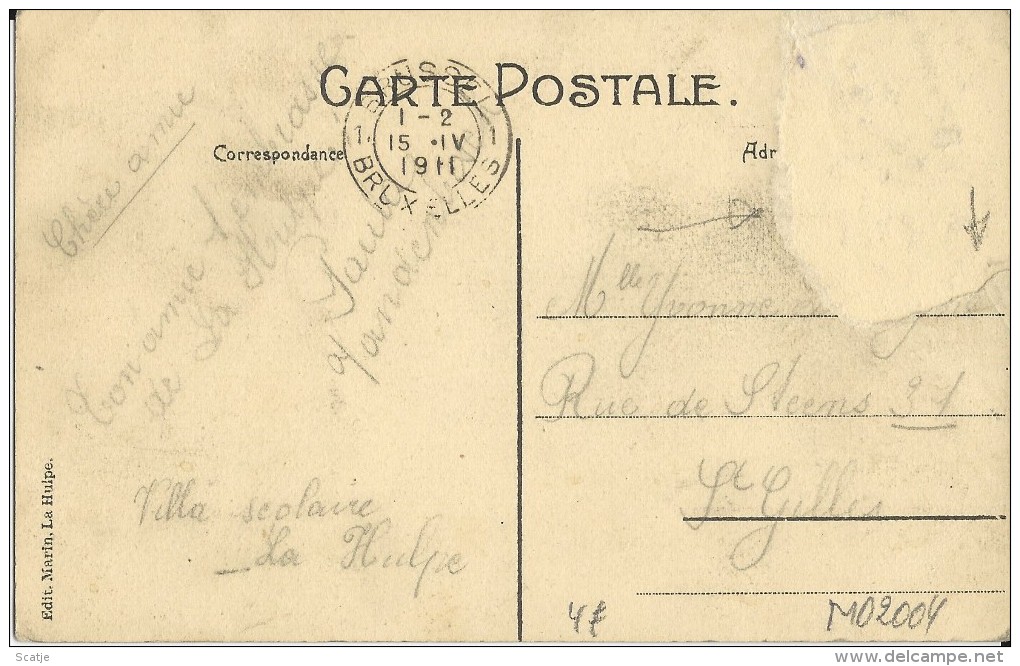 CARTE POSTALE.
BRUSSEL
1 1-2 1
15 IV
1911
BRUXELLES
Correspondance
Adr
Chère amie
Ton amie
de La Hulpe
Vanden
Villa scolaire
La Hulpe
Mlle Yvonne
Rue de Steens 31
St Gilles
Edit. Marin, La Hulpe.
4€
M02004
© Scatje
http://www.delcampe.net